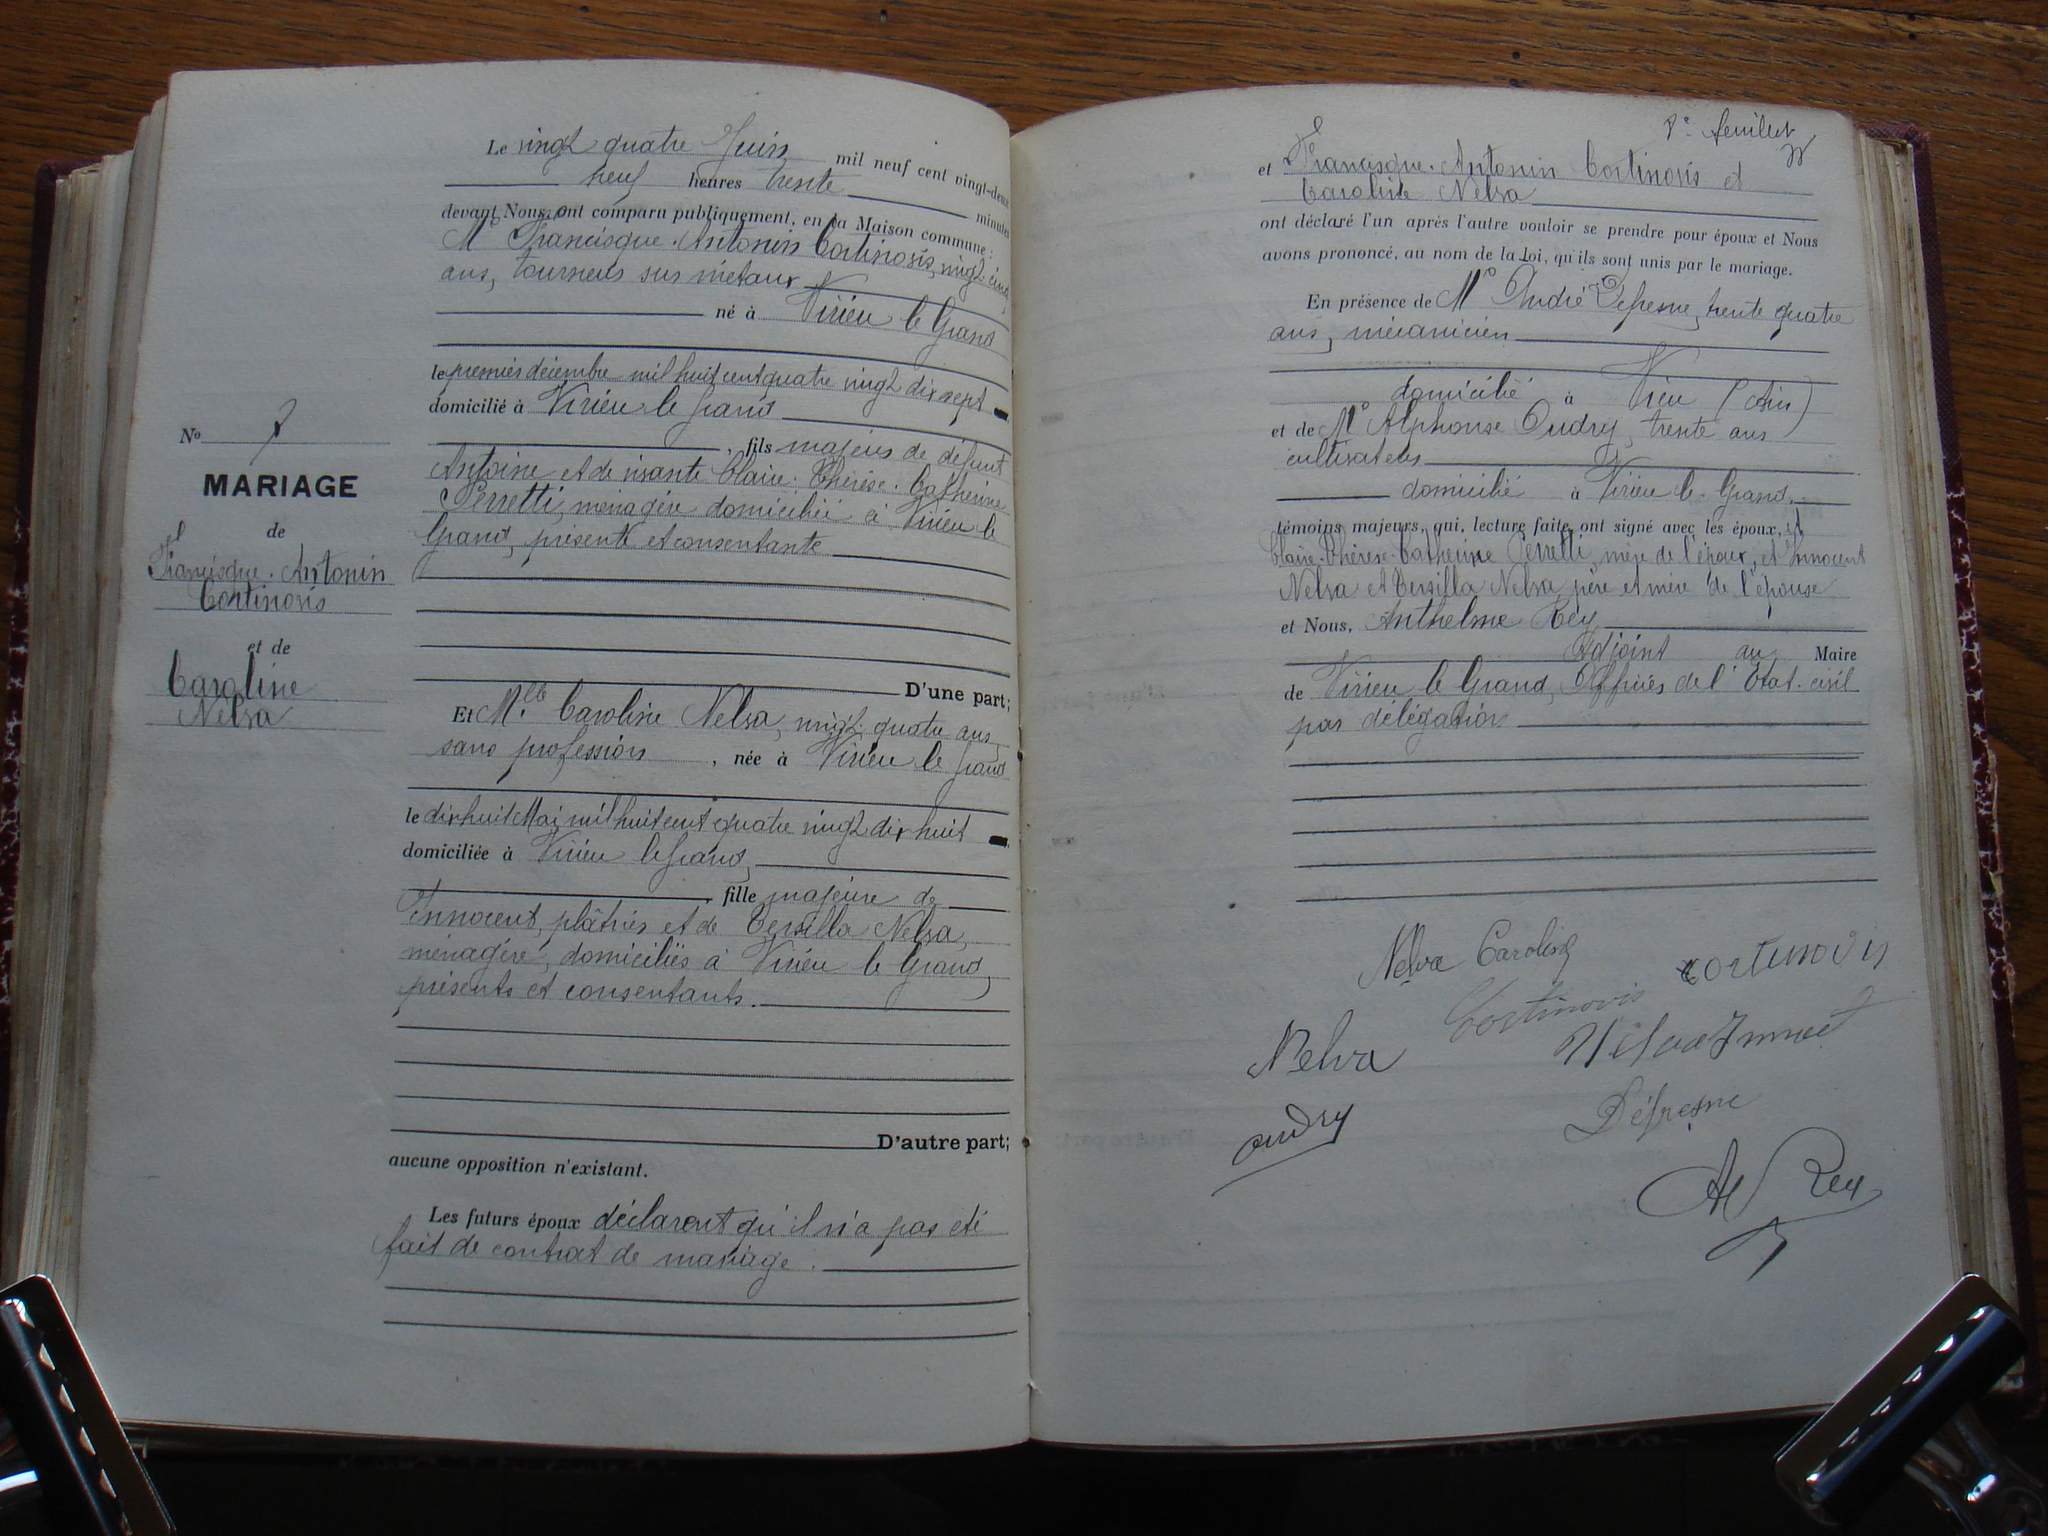 Le vingt quatre Juin mil neuf cent vingt-deux
neuf heures trente minutes
devant Nous, ont comparu publiquement, en la Maison commune :
Mr Francisque-Antonin Cortinovis, vingt-cinq
ans, tourneur sur métaux
né à Virieu le Grand
le premier décembre mil huit cent quatre vingt dix sept
domicilié à Virieu le Grand
, fils majeur de défunt
Antoine et de vivante Claire-Thérèse-Catherine
Perretti, ménagère domiciliée à Virieu le
Grand, présente et consentante
No 7
MARIAGE
de
Francisque-Antonin
Cortinovis
et de
Caroline
Nelva
D'une part;
Et Mlle Caroline Nelva, vingt-quatre ans,
sans profession, née à Virieu le Grand
le dix huit Mai mil huit cent quatre vingt dix huit
domiciliée à Virieu le Grand,
, fille majeure de
Innocent, plâtrier et de Tersilla Nelva,
ménagère, domiciliés à Virieu le Grand,
présents et consentants.
D'autre part;
aucune opposition n'existant.
Les futurs époux déclarent qu'il n'a pas été
fait de contrat de mariage.
feuillet
et Francisque-Antonin Cortinovis et
Caroline Nelva
ont déclaré l'un après l'autre vouloir se prendre pour époux et Nous
avons prononcé, au nom de la loi, qu'ils sont unis par le mariage.
En présence de Mr André Defresne, trente quatre
ans, mécanicien
domicilié à Vieu (Ain)
et de Mr Alphonse Oudry, trente ans
cultivateur
domicilié à Virieu le Grand,
témoins majeurs, qui, lecture faite, ont signé avec les époux, et
Claire-Thérèse-Catherine Perretti, mère de l'époux, et Innocent
Nelva et Tersilla Nelva, père et mère de l'épouse
et Nous, Anthelme Rey
Adjoint au Maire
de Virieu le Grand, Officier de l'Etat-civil
par délégation
Nelva Caroline
cortinovis
Cortinovis
Nelva Innocent
Nelva
Défresne
oudry
Rey